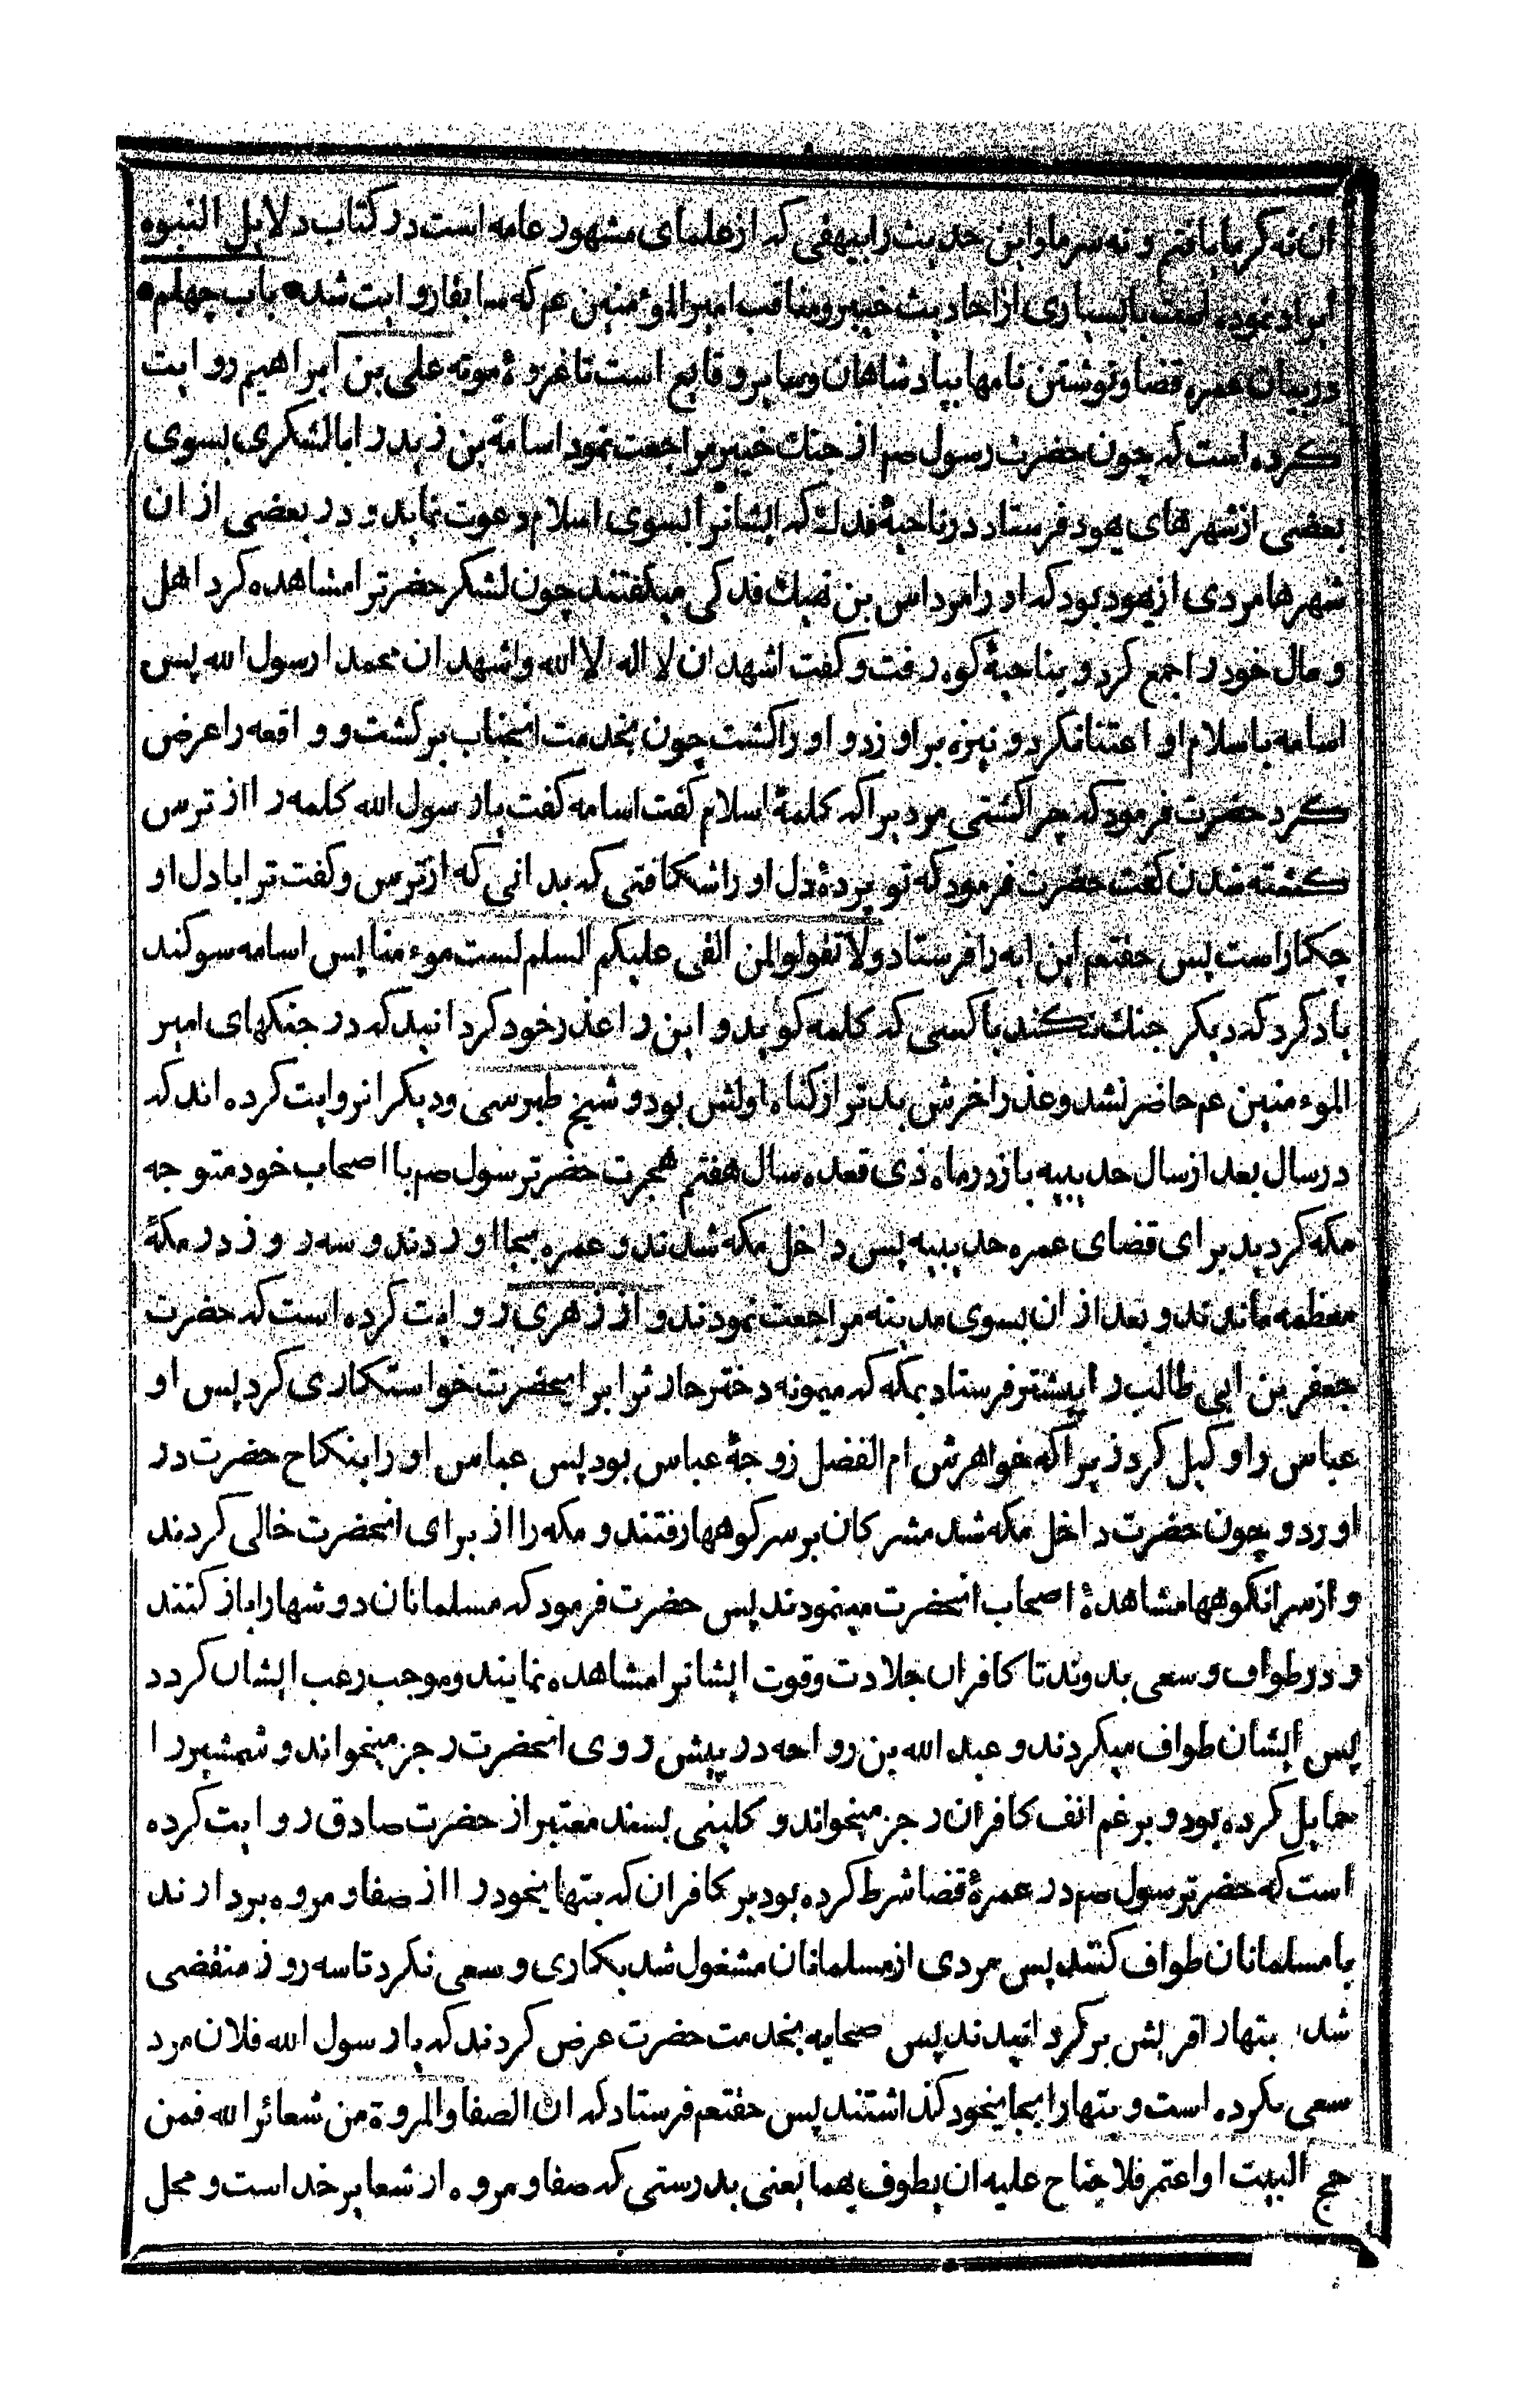 ان نه گرما یافتم و نه سرما و این حدیث را بیهقی که از علمای مشهور عامه است در کتاب دلایل النبوه
ایراد نموده است با بسیاری از احادیث خیبر و مناقب امیر المؤمنین عم که سابقا روایت شد باب چهلم
در بیان عمره قضا و نوشتن نامها بپادشاهان و سایر وقایع است تا غزوهٔ موته علی بن ابراهیم روایت
کرده است که چون حضرت رسول صم از جنك خیبر مراجعت نمود اسامة بن زید را با لشکری بسوی
بعضی از شهرهای یهود فرستاد در ناحیهٔ فدك که ایشانرا بسوی اسلام دعوت نماید و در بعضی از ان
شهرها مردی از یهود بود که او را مرداس بن نهیك فدکی میکفتند چون لشکر حضرترا مشاهده کرد اهل
و مال خود را جمع کرد و بناحیهٔ کوه رفت و کفت اشهد ان لا اله الا الله و اشهد ان محمدا رسول الله پس
اسامه باسلام او اعتنا نکرد و نیزه بر او زد و او را کشت چون بخدمت انجناب برکشت و واقعه را عرض
کرد حضرت فرمود که چرا کشتی مردیرا که کلمهٔ اسلام کفت اسامه کفت یا رسول الله کلمه را از ترس
کشته شدن کفت حضرت فرمود که تو پردهٔ دل او را شکافتی که بدانی که از ترس و کفت ترا با دل او
چکار است پس حقتعم این ایه را فرستاد ولا تقولوا لمن القی علیکم السلم لست موءمنا پس اسامه سوکند
یاد کرد که دیکر جنك نکند با کسی که کلمه کوید و این را عذر خود کردانید که در جنکهای امیر
الموءمنین عم حاضر نشد و عذر اخرش بدتر از کناه اولش بود و شیخ طبرسی و دیکران روایت کرده اند که
در سال بعد از سال حدیبیه باز در ماه ذی قعده سال هفتم هجرت حضرترسول صم با اصحاب خود متوجه
مکه کردید برای قضای عمره حدیبیه پس داخل مکه شدند و عمره بجا اوردند و سه روز در مکهٔ
معظمه ماندند و بعد از ان بسوی مدینه مراجعت نمودند و از زهری روایت کرده است که حضرت
جعفر بن ابی طالب را پیشتر فرستاد بمکه که میمونه دختر حارثرا برای انحضرت خواستکاری کرد پس او
عباس را وکیل کرد زیرا که خواهرش ام الفضل زوجهٔ عباس بود پس عباس او را بنکاح حضرت در
اورد و چون حضرت داخل مکه شد مشرکان بر سر کوهها رفتند و مکه را از برای انحضرت خالی کردند
و از سر انکوهها مشاهدهٔ اصحاب انحضرت مینمودند پس حضرت فرمود که مسلمانان دوشها را باز کنند
و در طواف و سعی بدوند تا کافران جلادت و قوت ایشانرا مشاهده نمایند و موجب رعب ایشان کردد
پس ایشان طواف میکردند و عبد الله بن رواحه در پیش روی انحضرت رجز میخواند و شمشیر را
حمایل کرده بود و برغم انف کافران رجز میخواند و کلینی بسند معتبر از حضرت صادق روایت کرده
است که حضرترسول صم در عمرهٔ قضا شرط کرده بود بر کافران که بتهای خود را از صفا و مروه بردارند
با مسلمانان طواف کنند پس مردی از مسلمانان مشغول شد بکاری و سعی نکرد تا سه روز منقضی
شد بتها را قریش برکردانیدند پس صحابه بخدمت حضرت عرض کردند که یا رسول الله فلان مرد
سعی نکرده است و بتها را بجایخود کذاشتند پس حقتعم فرستاد که ان الصفا والمروة من شعائر الله فمن
حج البیت او اعتمر فلا جناح علیه ان یطوف بهما یعنی بدرستی که صفا و مروه از شعایر خداست و محل